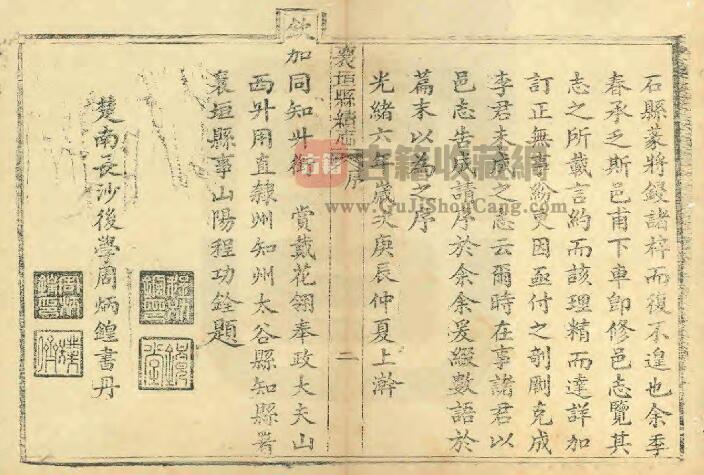 石縣篆將鋟諸梓而復不遑也余季
春承乏斯邑甫下車即修邑志覽其
志之所載言約而該理精而達詳加
訂正無事紛更因亟付之剞劂克成
李君未成之志云爾時在事諸君以
邑志告成請序於余余爰綴數語於
篇末以為之序
光緒六年歲次庚辰仲夏上澣
襄垣縣續志 序 二
欽加同知升銜 賞戴花翎奉政大夫山
西升用直隸州知州太谷縣知縣署
襄垣縣事山陽程功銓題
楚南長沙後學周炳鍠書丹
古籍收藏網
www.GuJiShouCang.com